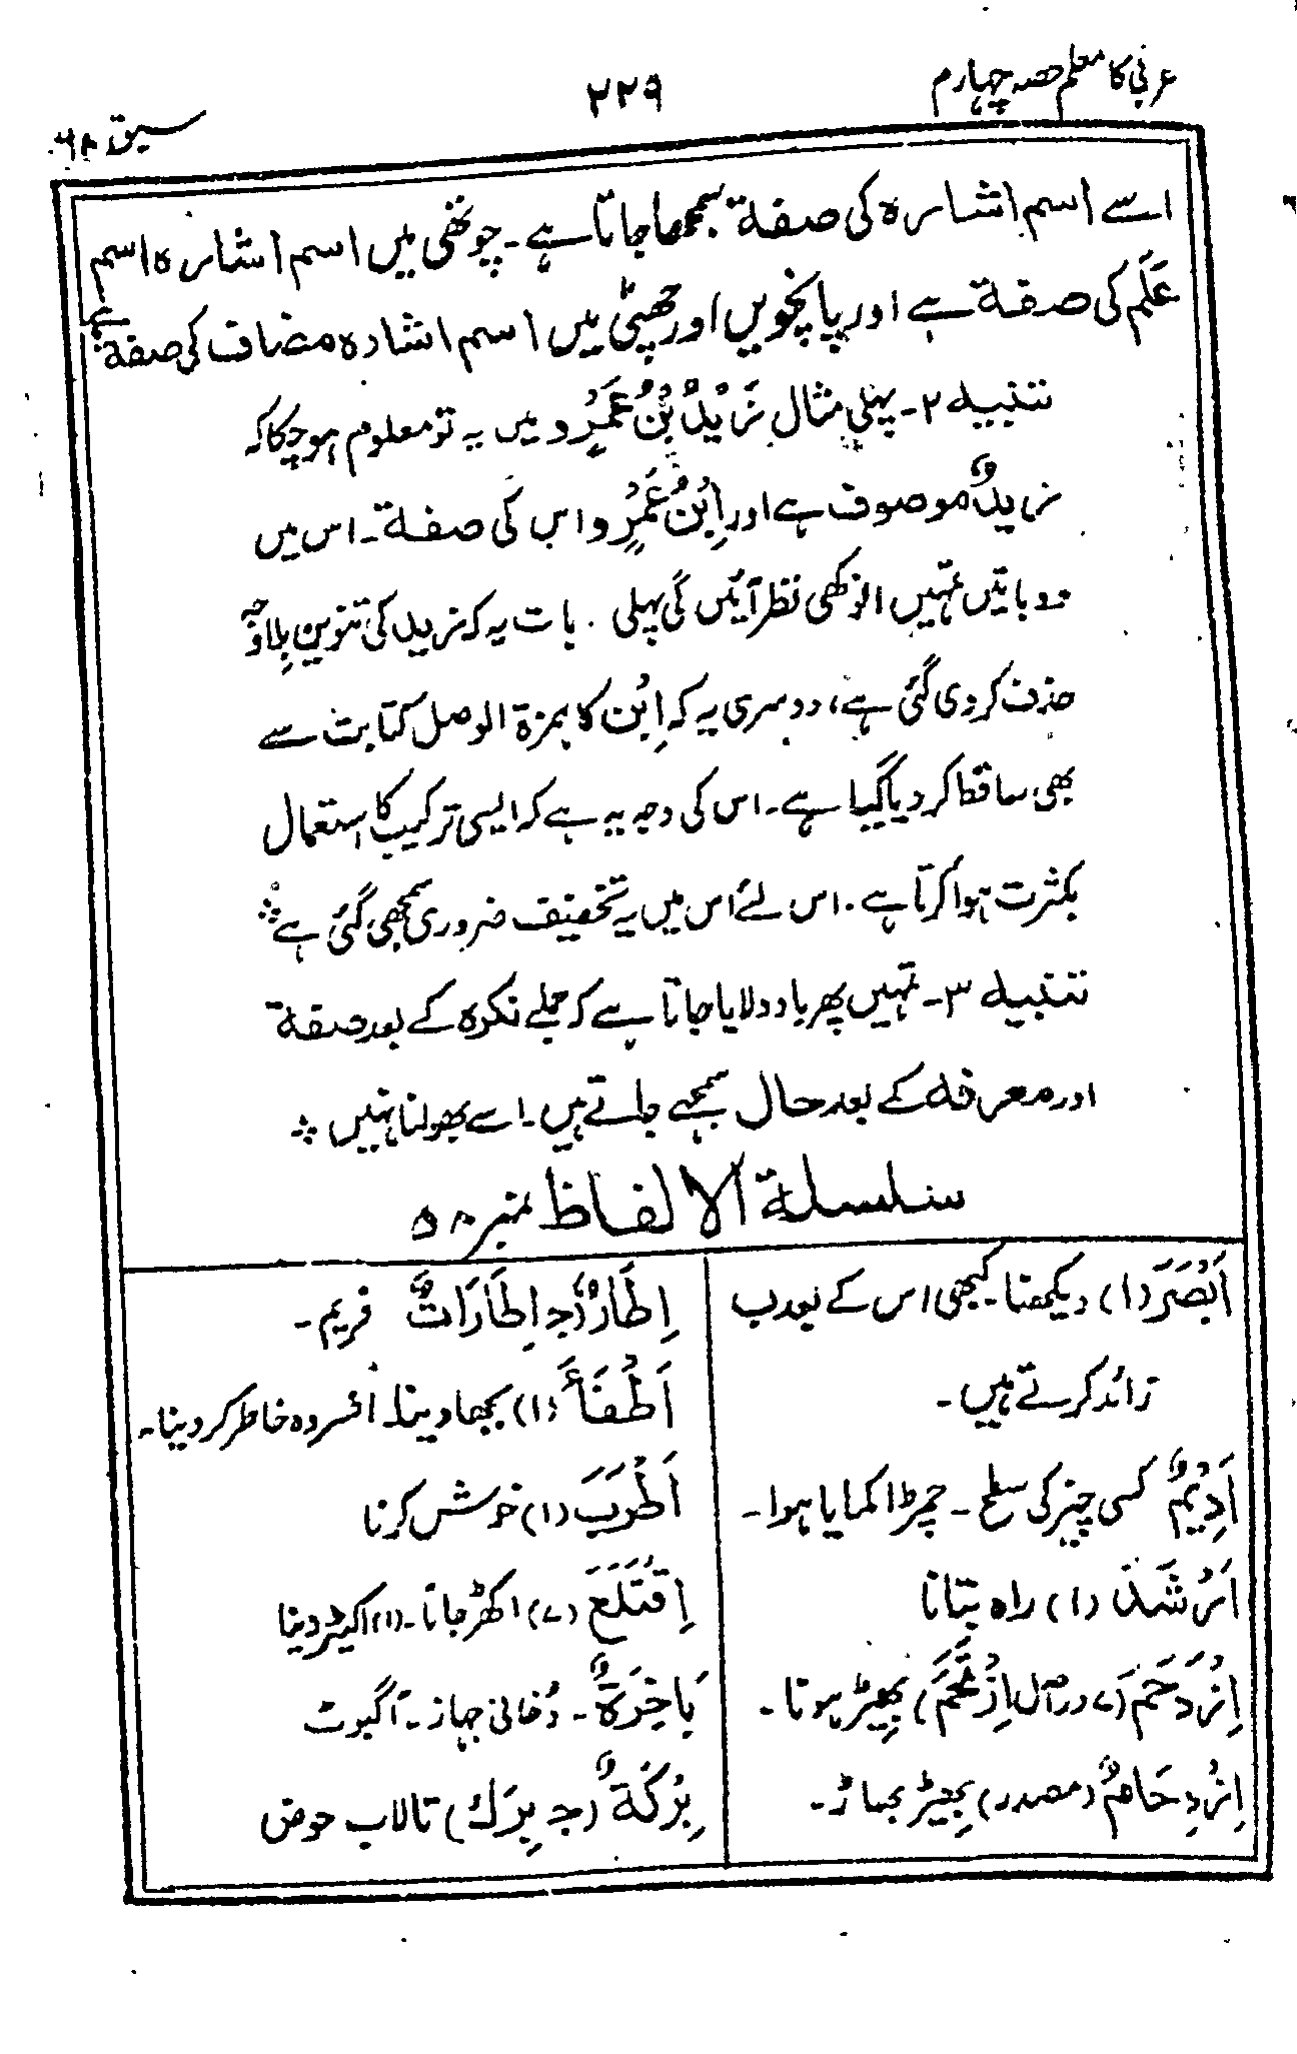 عربی کا معلم حصہ چہارم
۲۲۹
سبق ۶۸
اسے اسم اشارہ کی صفة سمجھا جاتا ہے۔ چوتھی میں اسم اشارہ اسم
عَلَم کی صفة ہے اور پانچویں اور چھٹی میں اسم اشارہ مضاف کی صفة ہے
تنبیہ ۲۔ پہلی مثال زَیْدُ بْنُ عَمْرٍو میں یہ تو معلوم ہو چکا کہ
زیدٌ موصوف ہے اور اِبْنُ عَمْرٍو اس کی صفة۔ اس میں
دو باتیں تمہیں انوکھی نظر آئیں گی پہلی بات یہ کہ زید کی تنوین بِلا وجہ
حذف کر دی گئی ہے، دوسری یہ کہ اِبْن کا ہمزة الوصل کتابت سے
بھی ساقط کر دیا گیا ہے۔ اس کی وجہ یہ ہے کہ ایسی ترکیب کا استعمال
بکثرت ہوا کرتا ہے۔ اس لئے اس میں یہ تخفیف ضروری سمجھی گئی ہے
تنبیہ ۳۔ تمہیں پھر یاد دلایا جاتا ہے کہ جملے نکرہ کے بعد صفة
اور معرفہ کے بعد حال سمجھے جاتے ہیں۔ اسے بھولنا نہیں
سلسلة الالفاظ نمبر ۵۸
اَبْصَرَ (۱) دیکھنا۔ کبھی اس کے بعد ب
زائد کرتے ہیں۔
اَدِیْمٌ کسی چیز کی سطح ۔ چمڑا کمایا ہوا۔
اَرْشَدَ (۱) راہ بتانا
اِزْدَحَمَ (۷ دراصل اِزْتَحَمَ) بھیڑ ہونا۔
اِزْدِحَامٌ (مصدر) بھیڑ بھاڑ۔
اِطَارٌ (جـ اِطَارَاتٌ فریم۔
اَطْفَأَ (۱) بجھا دینا۔ افسردہ خاطر کر دینا۔
اَطْرَبَ (۱) خوش کرنا
اِقْتَلَعَ (۷) اکھڑ جانا۔ (۱) اکھیڑ دینا
بَاخِرَةٌ ۔ دُخانی جہاز۔ آگبوٹ
بِرْکَةٌ (جـ بِرَك) تالاب حوض